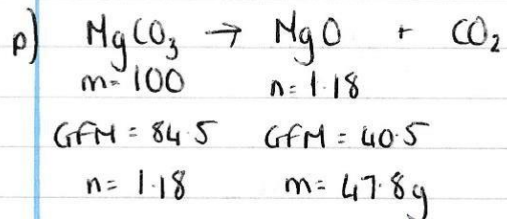 p) MgCO₃ → MgO + CO₂
m= 100 n= 1.18
GFM = 84.5 GFM = 40.5
n= 1.18 m= 47.8g